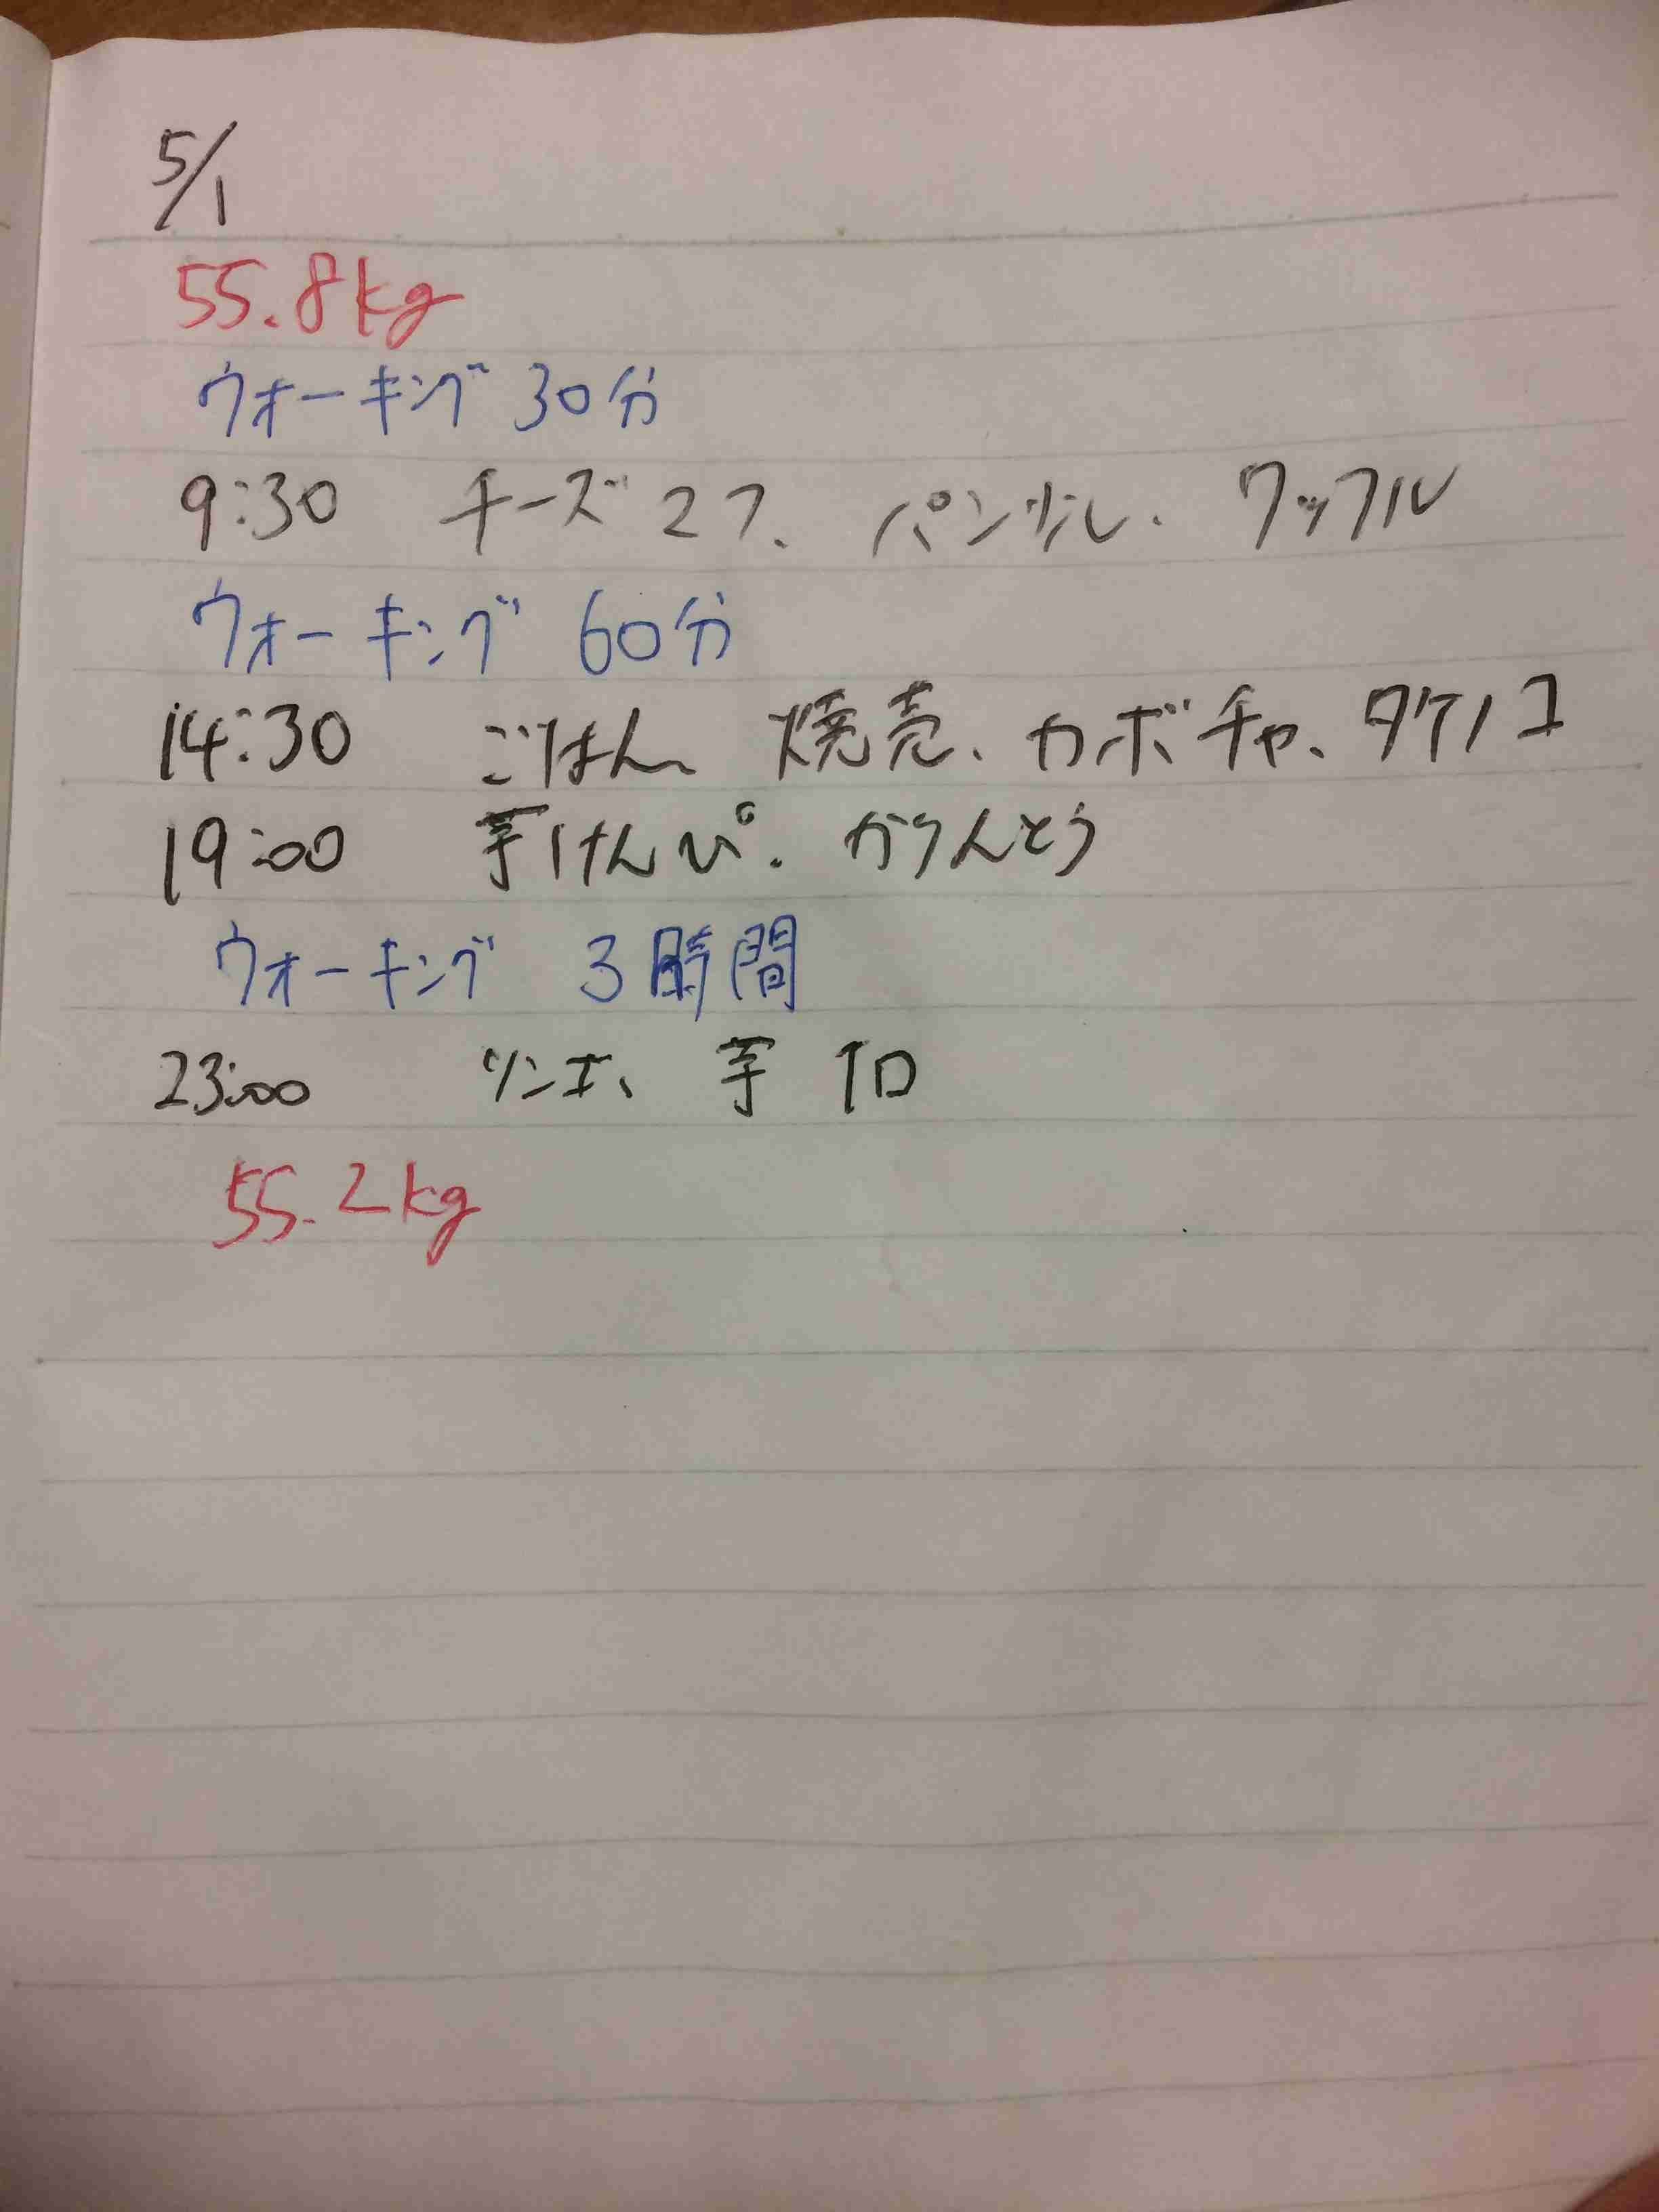 5/1
55.8kg
ウォーキング 30分
9:30 チーズ2つ、パン少し、ワッフル
ウォーキング 60分
14:30 ごはん、焼売、カボチャ、タケノコ
19:00 芋けんぴ、かりんとう
ウォーキング 3時間
23:00 芋
55.2kg